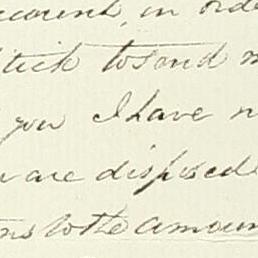 account, in orde
stick to send m
you I have n
are disposed
ns to the amoun